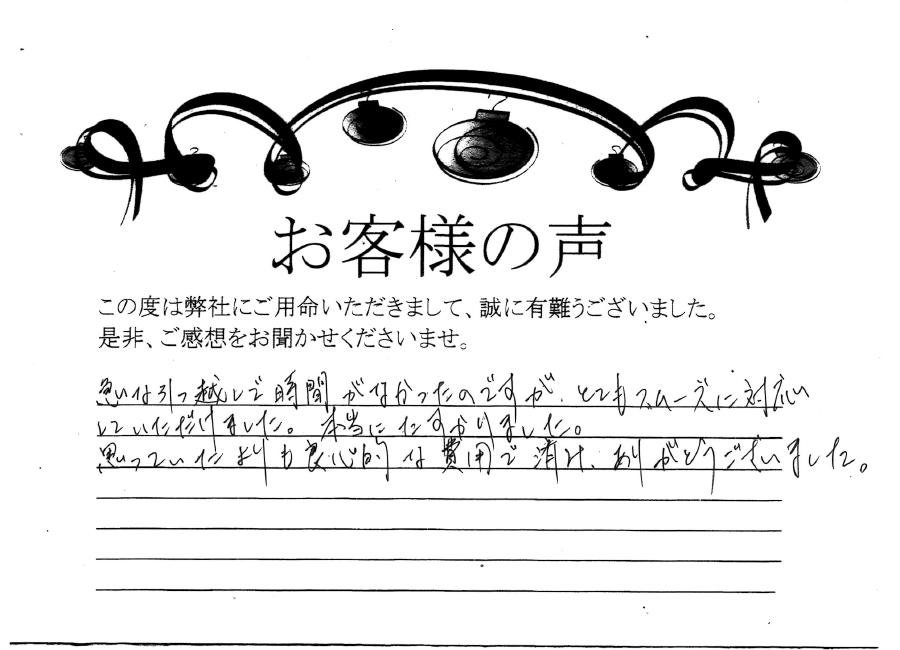 お客様の声
この度は弊社にご用命いただきまして、誠に有難うございました。
是非、ご感想をお聞かせくださいませ。
急いな引っ越しで時間がなかったのですが、とてもスムーズに対応い
していただけました。本当にたすかりました。
思っていたよりも良心的な費用で済み、ありがとうございました。